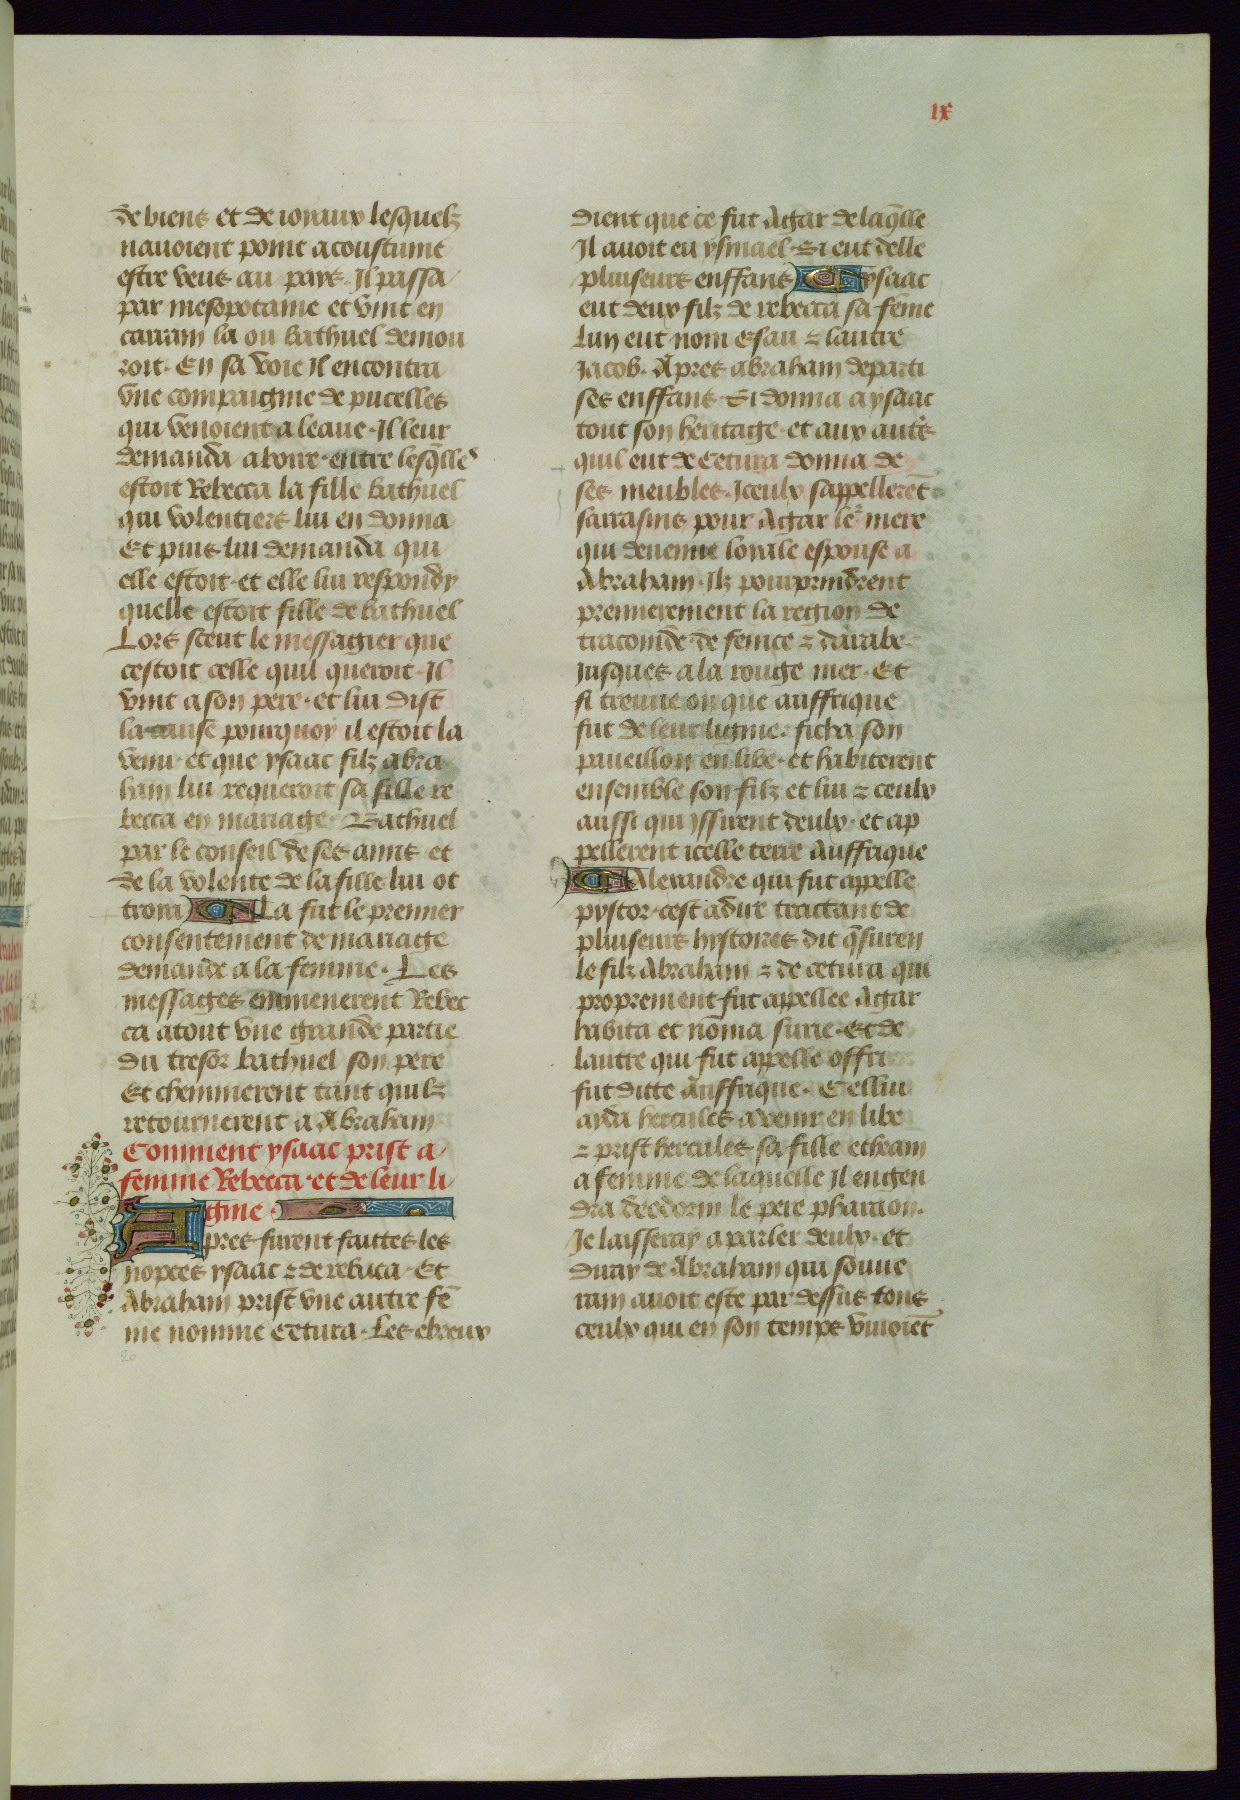 ix
de biens et de ioyaux lesquelz
nauoient point acoustume
estre veus au pays. Il passa
par mesopotame et vint en
carram la ou bathuel demou
roit. En sa voie il encontra
vne compaignie de pucelles
qui venoient a leaue. Il leur
demanda a boire. entre lesq̃lles
estoit Rebecca la fille bathuel
qui volentiers lui en donna
Et puis lui demanda qui
elle estoit. et elle lui respondy
quelle estoit fille de bathuel
Lors sceut le messagier que
cestoit celle quil queroit. Il
vint a son pere. et lui dist
la cause pourquoy il estoit la
venu. et que ysaac filz abra
ham lui requeroit sa fille re
becca en mariage. Bathuel
par le conseil de ses amis et
de la volente de la fille lui ot
troya La fut le premier
consentement de mariage
demande a la femme. Les
messages emmenerent Rebec
ca atout vne grande partie
du tresor bathuel son pere
Et cheminerent tant quilz
retournerent a Abraham
Comment ysaac prist a
femme Rebecca. et de leur li
gnie.
Apres furent faittes les
nopces ysaac ⁊ de rebeca. Et
Abraham prist vne autre fẽ
me nomme cetura. Les ebreux
dient que ce fut Agar de laq̃lle
Il auoit eu ysmael. Si eut delle
pluiseurs enffans ysaac
eut deux filz de rebecca sa fẽme
Lun eut nom esau ⁊ lautre
Jacob. Apres abraham departi
ses enffans. Si donna a ysaac
tout son heritage. et aux autr̃s
quil eut de Cetura donna de
ses meubles. Iceulx sappellerẽt
sarrasins pour Agar lẽ mere
qui deuenue loyale espouse a
Abraham. Ilz pourprindrent
premierement la region de
traconide de fenice ⁊ darabe.
Jusques a la rouge mer. Et
si treuue on que auffrique
fut de leur lignie. ficha son
paueillon en libe. et habiterent
ensemble son filz et lui ⁊ ceulx
aussi qui yssirent deulx. et ap
pellerent icelle terre Auffrique
Alexandre qui fut appelle
pystor. cest a dire traictant de
pluiseurs hystoires dit q̃ suren
le filz Abraham ⁊ de cetura qui
proprement fut appellee Agar
habita et nõma surie. Et de
lautre qui fut appelle offri
fut ditte Auffrique. Cellui
ayda hercules a venir en libe
⁊ prist hercules sa fille etheam
a femme de laquelle il engen
dra deodorin le pere pharaon.
Je laisseray a parler deulx. et
diray de Abraham qui souue
rain auoit este par dessus tous
ceulx qui en son temps viuoiẽt